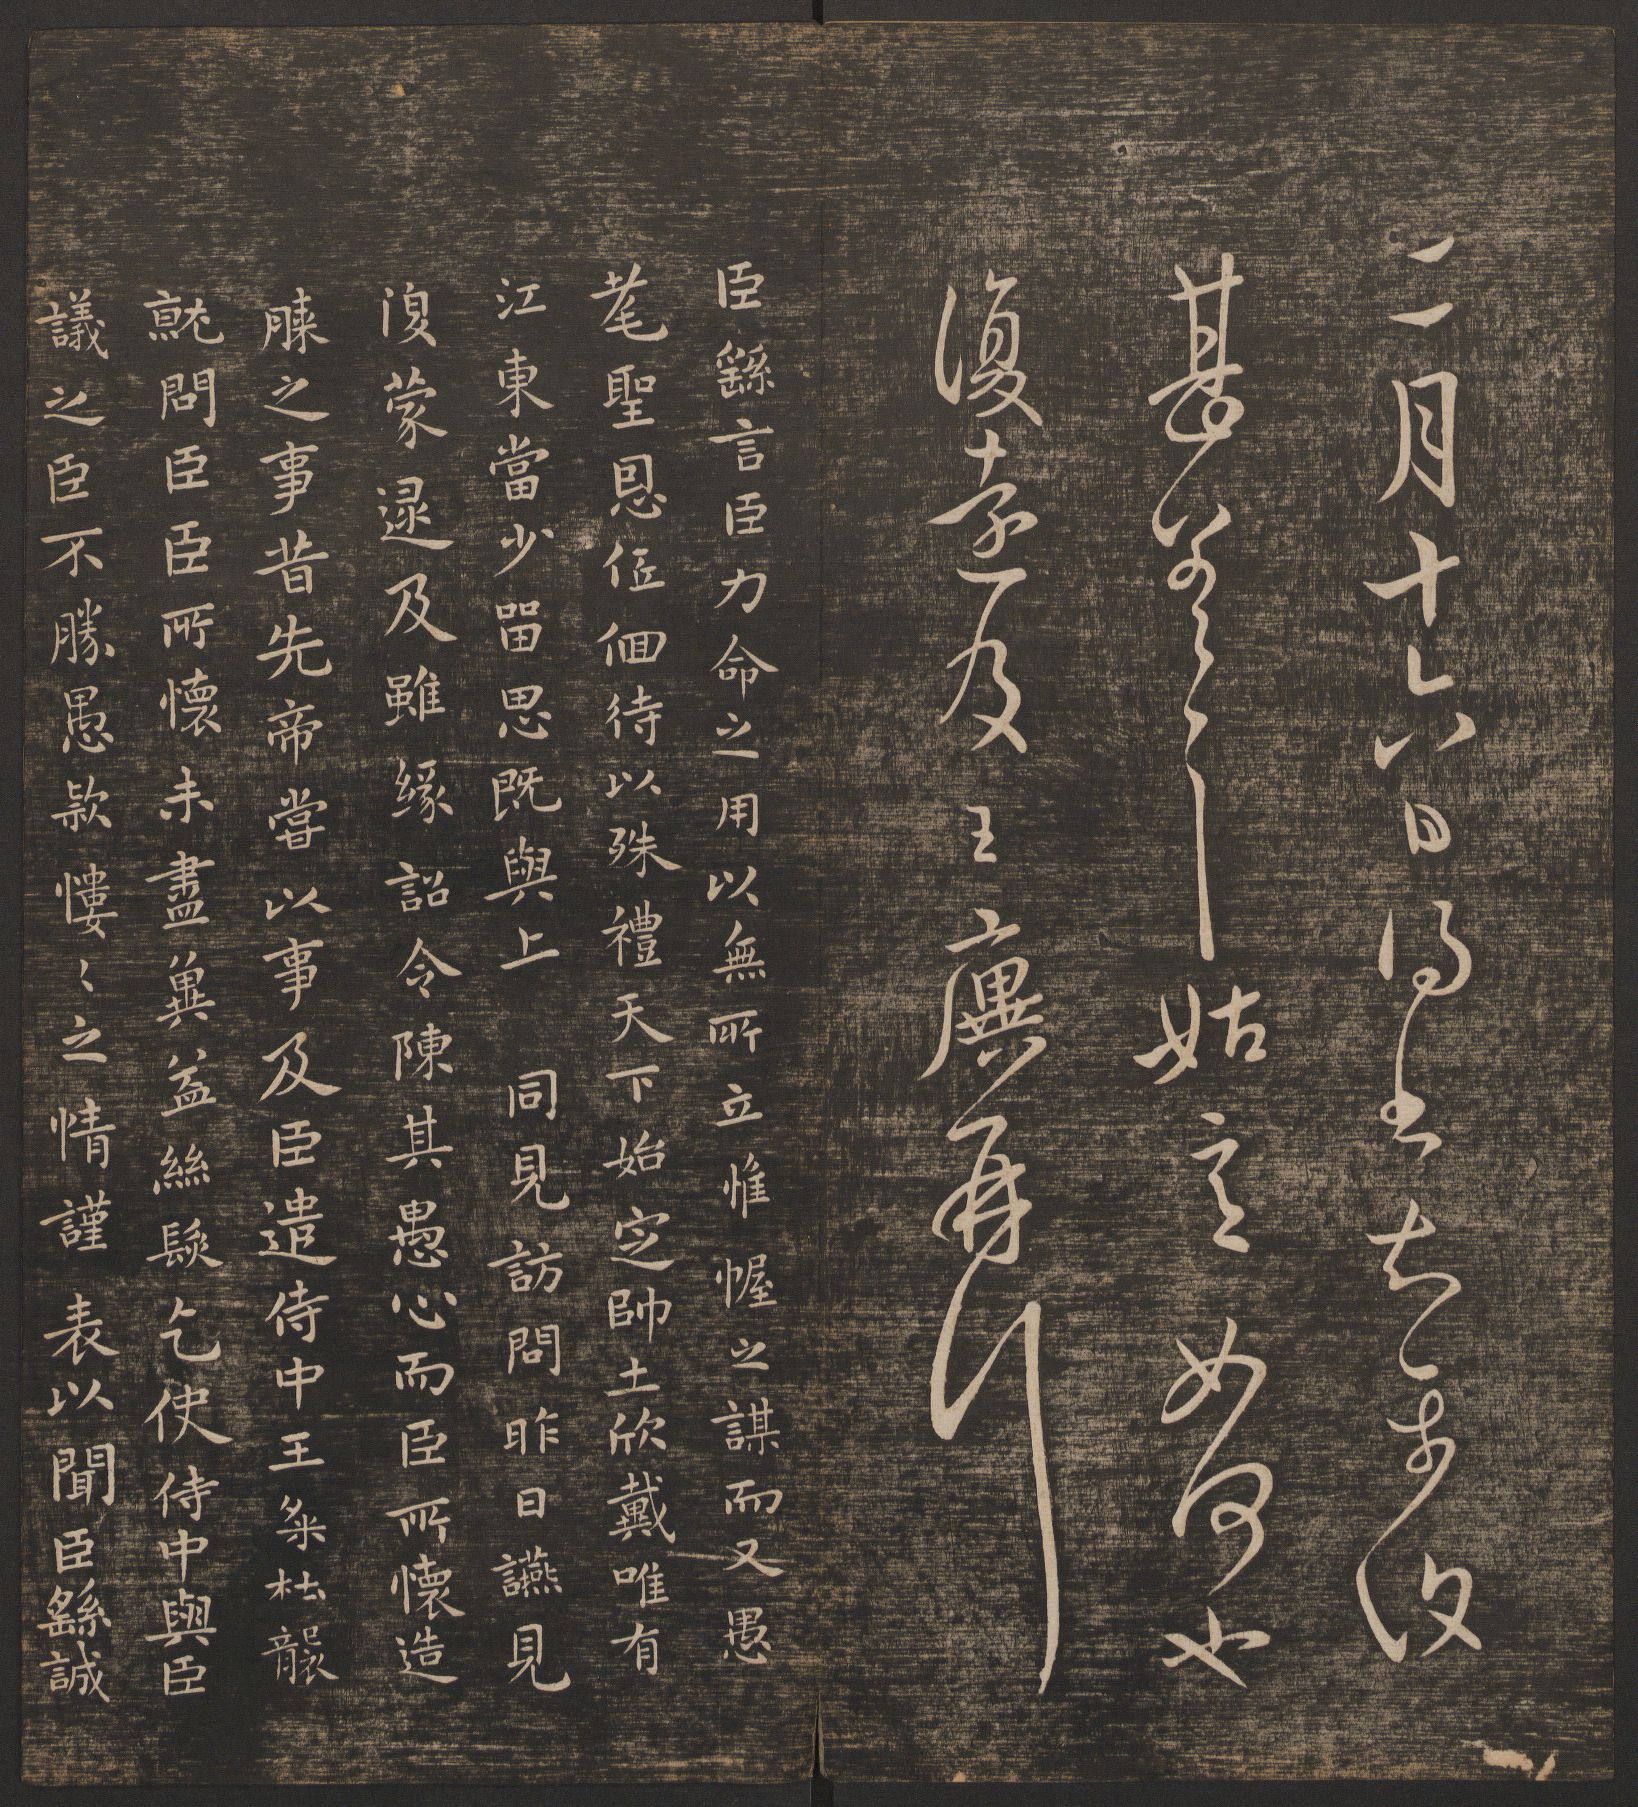 二月十六日得書知
甚姑何如也
復王廙再拜
臣繇言臣力命之用以無所立惟幄之謀而又愚
耄聖恩低佪待以殊禮天下始定帥土欣戴唯有
江東當少留思既與上 同見訪問昨日讌見
復蒙逮及雖緣詔令陳其愚心而臣所懷造
膝之事昔先帝嘗以事及臣遣侍中王粲杜襲
就問臣臣所懷未盡冀益絲髮乞使侍中與臣
議之臣不勝愚款慺〻之情謹表以聞臣繇誠